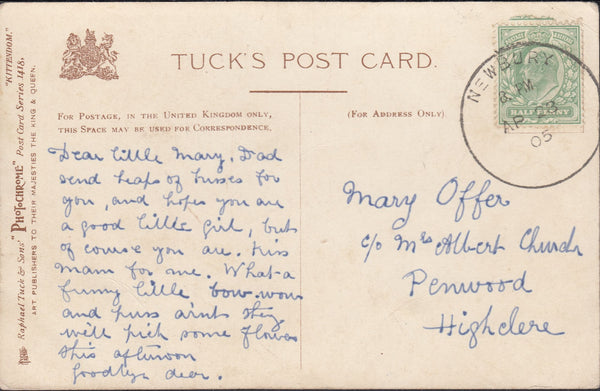 TUCK'S POST CARD.
FOR POSTAGE, IN THE UNITED KINGDOM ONLY,
THIS SPACE MAY BE USED FOR CORRESPONDENCE.
(FOR ADDRESS ONLY)
"KITTENDOM."
Raphael Tuck & Sons' "PHOTOCHROME" Post Card Series 1418.
ART PUBLISHERS TO THEIR MAJESTIES THE KING & QUEEN.
Dear little Mary. Dad
send heaps of kisses for
you, and hopes you are
a good little girl, but
of course you are. Kiss
Mam for me. What a
funny little bow-wow
and puss aint they
we'll pick some flowers
this afternoon
Goodbye dear.
NEWBURY
PM
AP 23
05
HALFPENNY
Mary Offer
c/o Mrs Albert Church
Penwood
Highclere